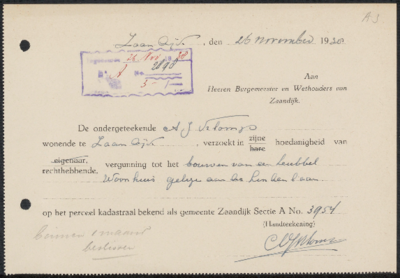 A 3
Zaandijk, den 26 november 1930
Aan
Heeren Burgemeester en Wethouders van
Zaandijk.
De ondergeteekende A J
wonende te Zaandijk, verzoekt in zijne hare hoedanigheid van
eigenaar, rechthebbende, vergunning tot het bouwen van een dubbel
Woonhuis gelegen aan de
op het perceel kadastraal bekend als gemeente Zaandijk Sectie A No. 3954
(Handteekening)
binnen 1 maand
beslissen